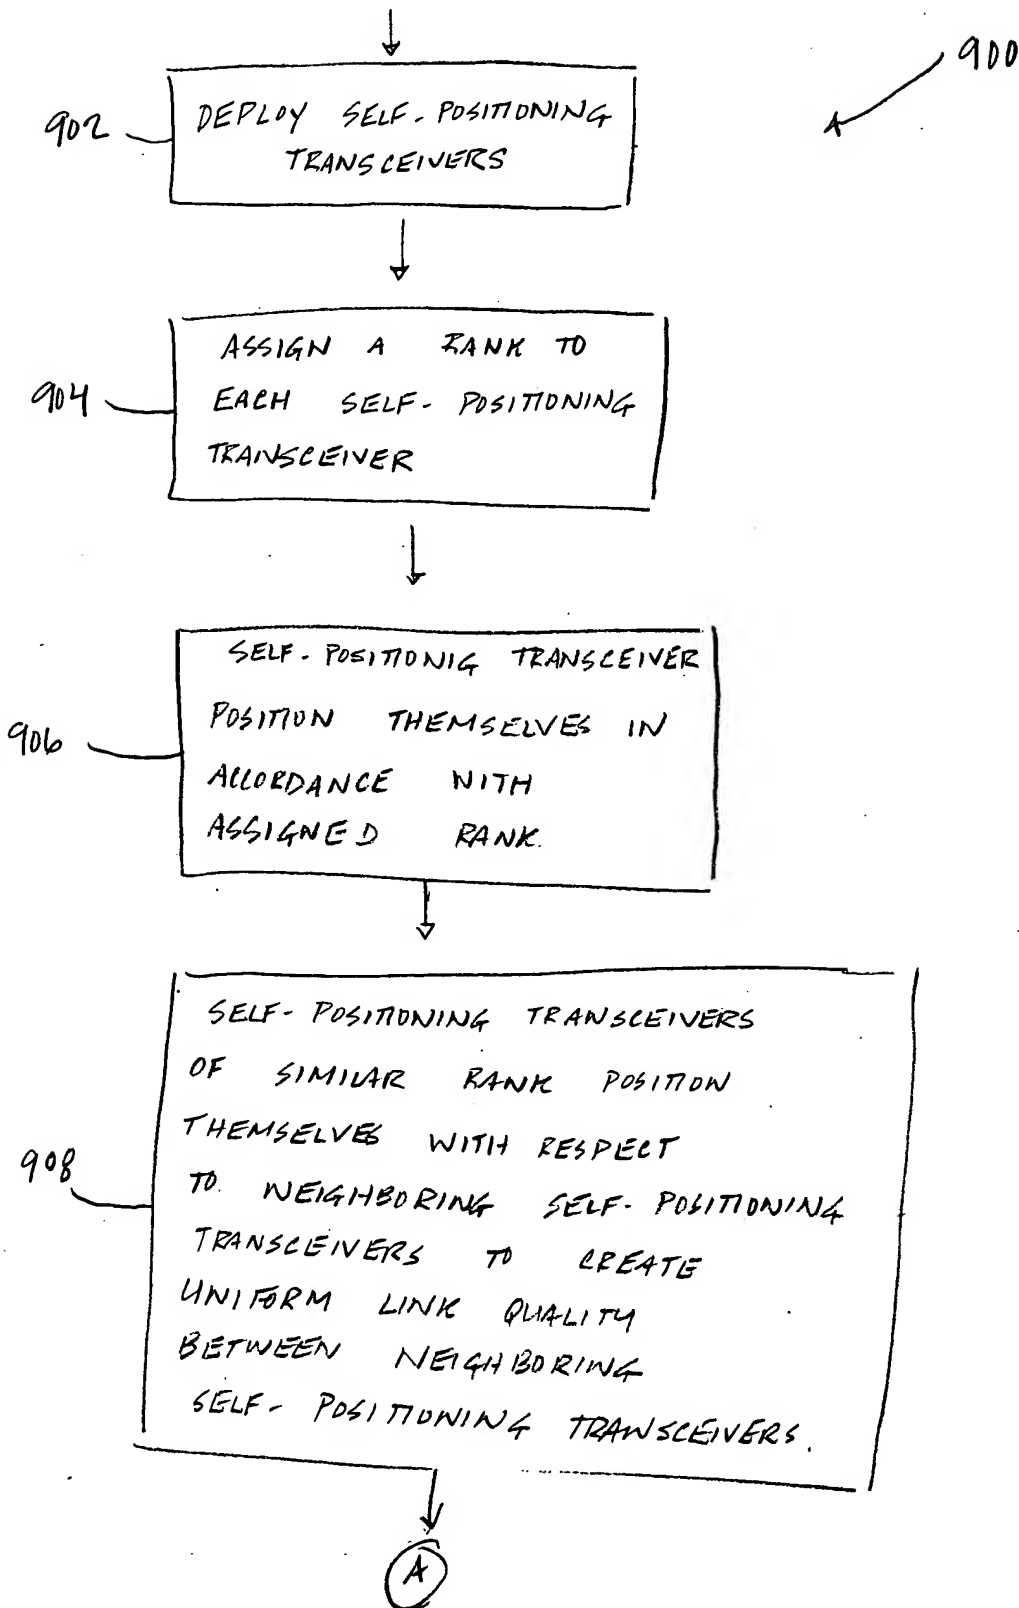 900
902
DEPLOY SELF-POSITIONING
TRANSCEIVERS
904
ASSIGN A RANK TO
EACH SELF-POSITIONING
TRANSCEIVER
906
SELF-POSITIONIG TRANSCEIVER
POSITION THEMSELVES IN
ACCORDANCE WITH
ASSIGNED RANK.
908
SELF-POSITIONING TRANSCEIVERS
OF SIMILAR RANK POSITION
THEMSELVES WITH RESPECT
TO NEIGHBORING SELF-POSITIONING
TRANSCEIVERS TO CREATE
UNIFORM LINK QUALITY
BETWEEN NEIGHBORING
SELF-POSITIONING TRANSCEIVERS.
A